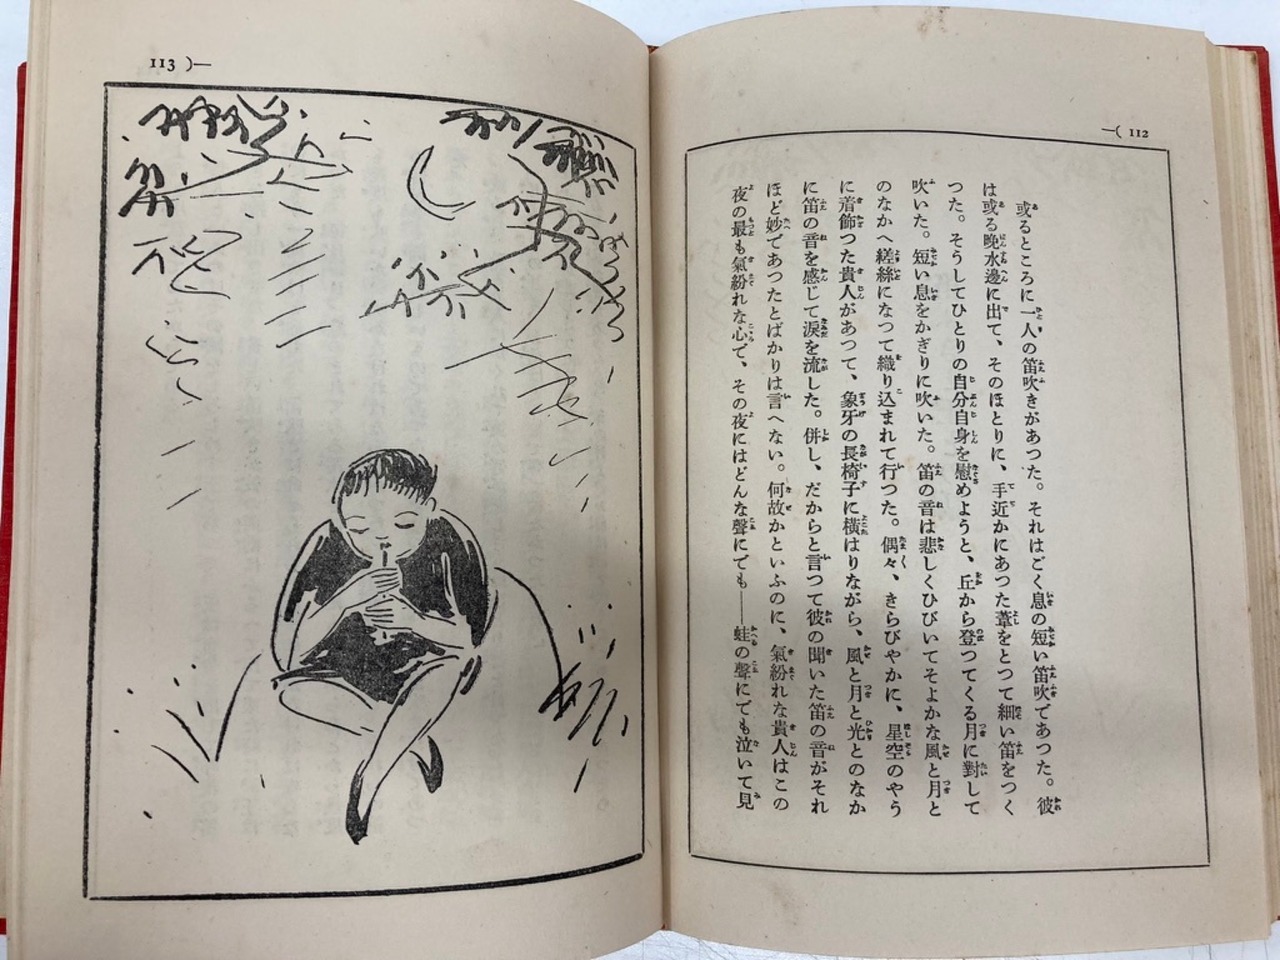 —( 112
或るところに一人の笛吹きがあつた。それはごく息の短い笛吹であつた。彼
は或る晩水邊に出て、そのほとりに、手近かにあつた葦をとつて細い笛をつく
つた。そうしてひとりの自分自身を慰めようと、丘から登つてくる月に對して
吹いた。短い息をかぎりに吹いた。笛の音は悲しくひびいてそよかな風と月と
のなかへ縒絲になつて織り込まれて行つた。偶々、きらびやかに、星空のやう
に着飾つた貴人があつて、象牙の長椅子に横はりながら、風と月と光とのなか
に笛の音を感じて涙を流した。併し、だからと言つて彼の聞いた笛の音がそれ
ほど妙であつたとばかりは言へない。何故かといふのに、氣紛れな貴人はこの
夜の最も氣紛れな心で、その夜にはどんな聲にでも——蛙の聲にでも泣いて見
113 )—